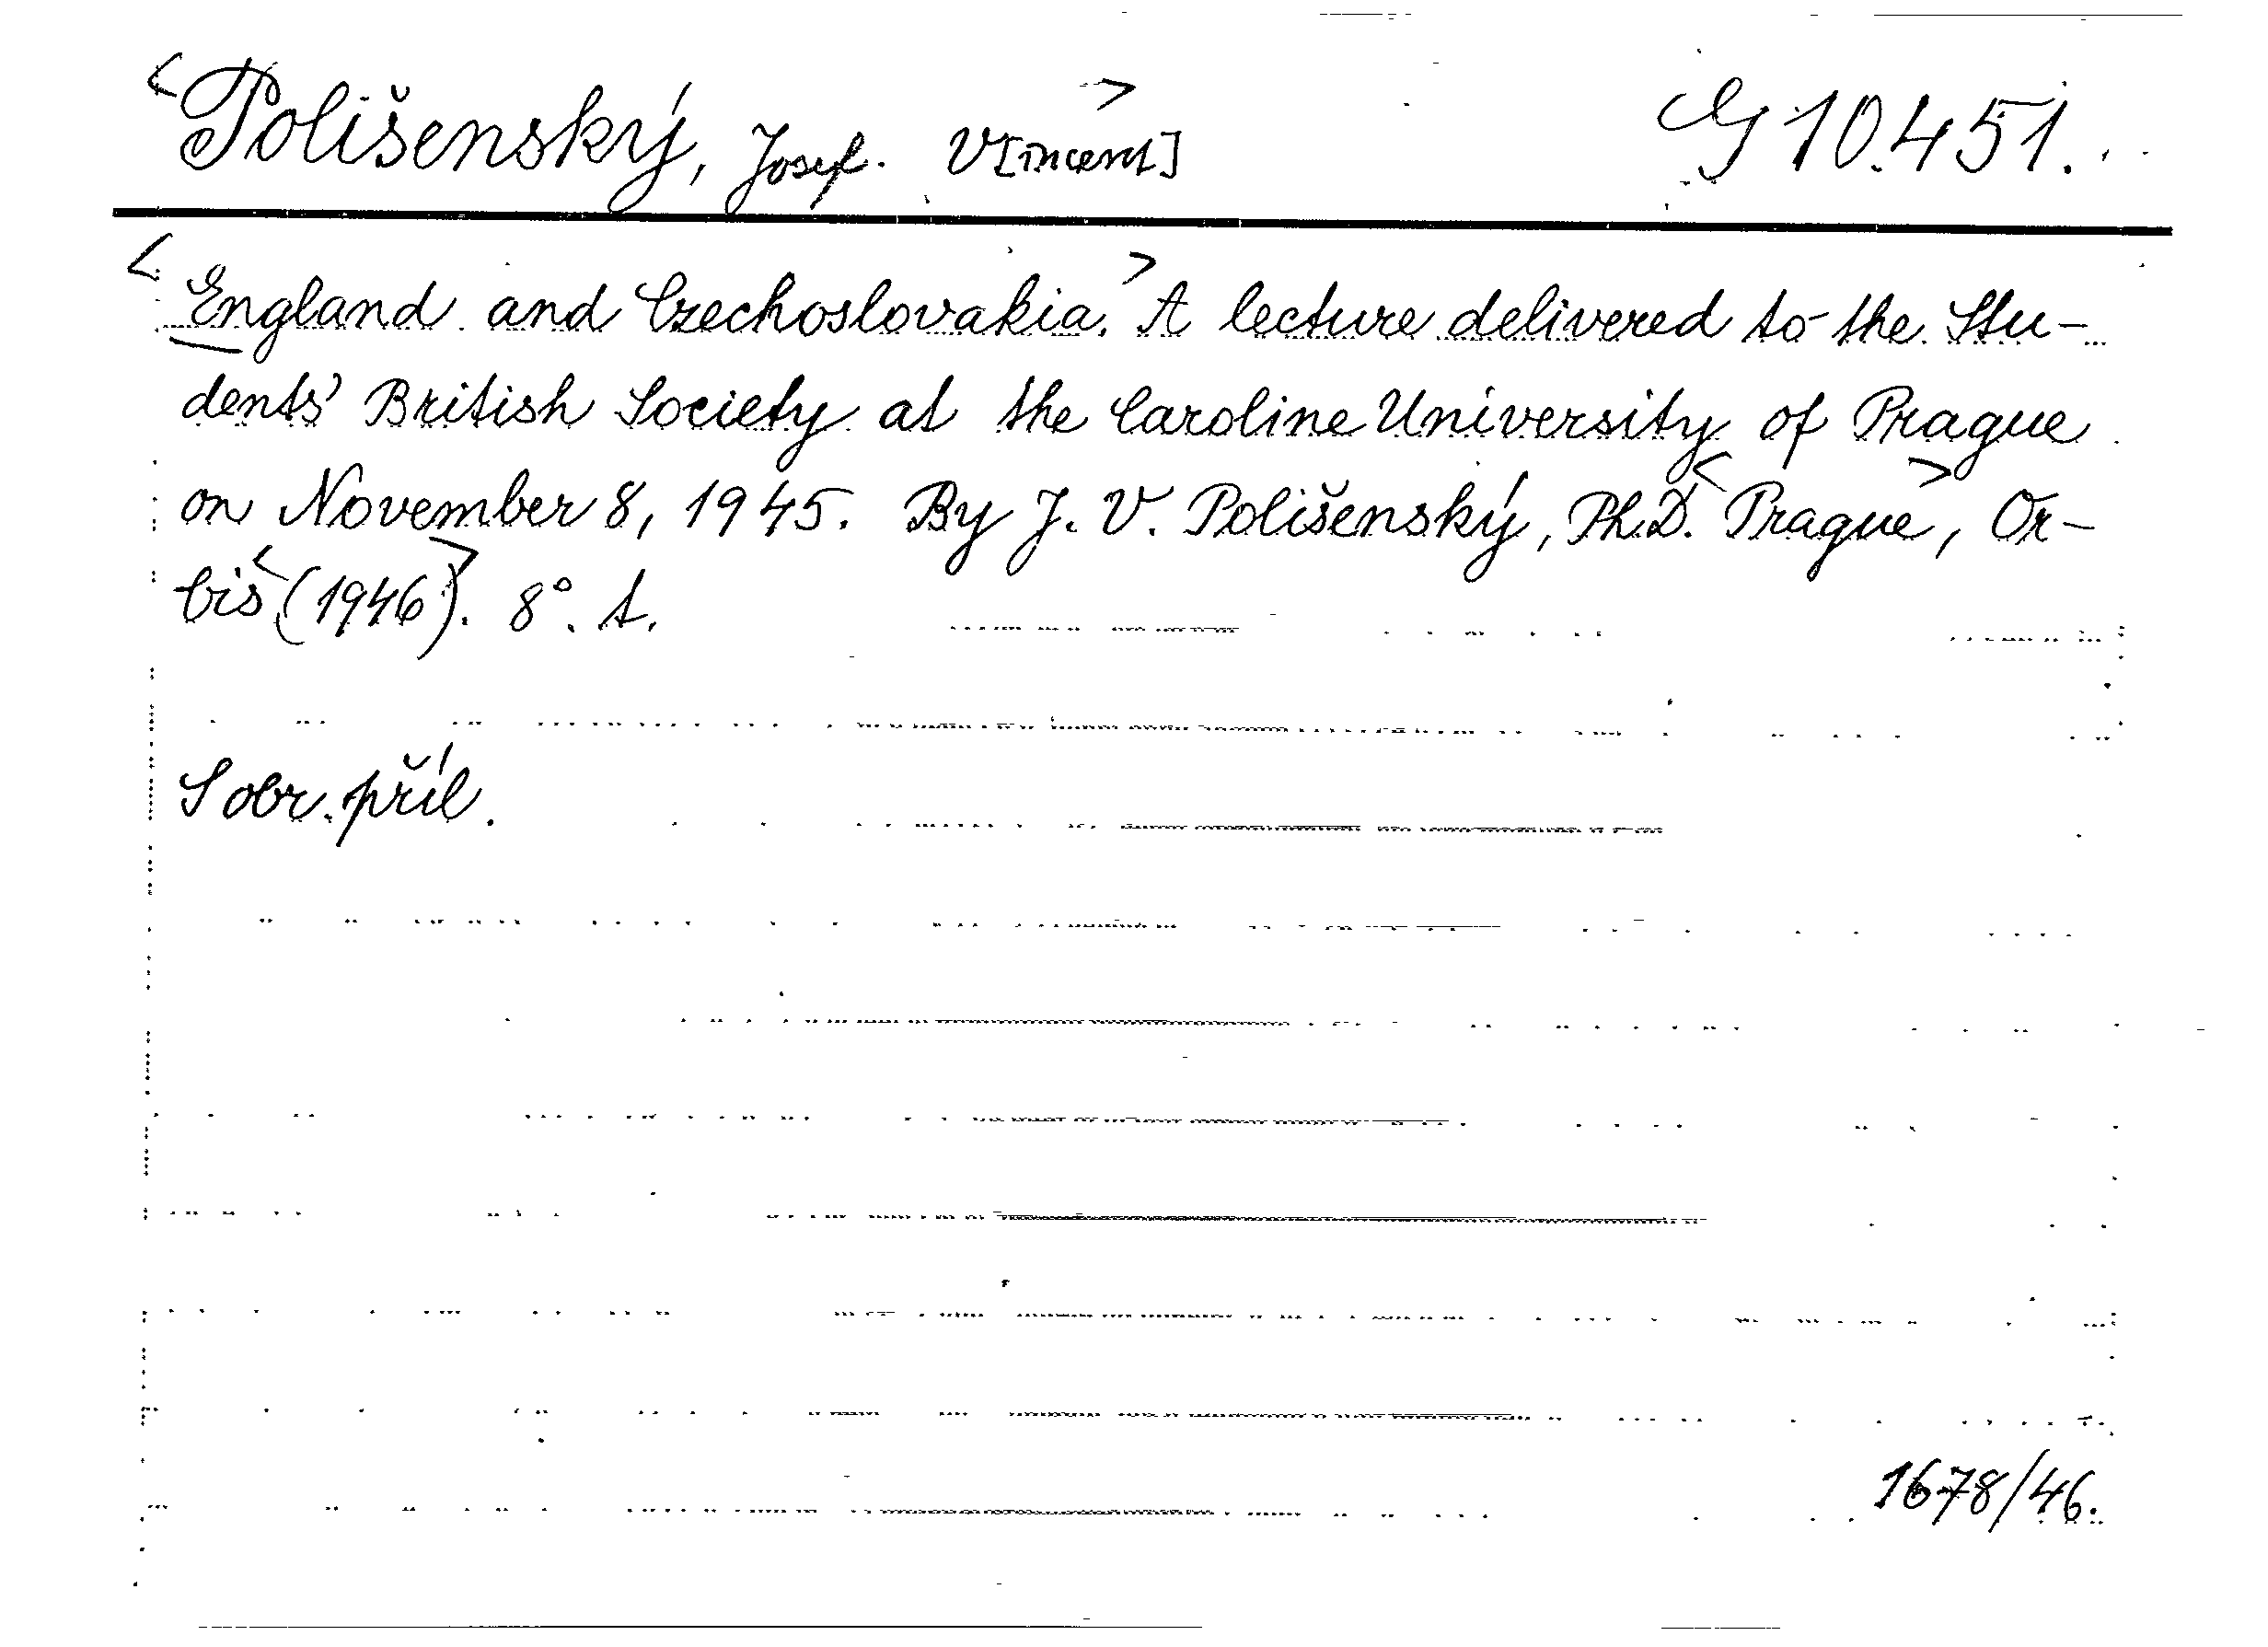 <Polišenský, Josef. V[incent]> G 10.451.
<England and Czechoslovakia.> A lecture delivered to the Stu-
dents' British Society at the Caroline University of Prague
on November 8, 1945. By J. V. Polišenský, Ph.D. <Prague>, Or-
bis <(1946)>. 8°. t.
S obr. příl.
1678/46.